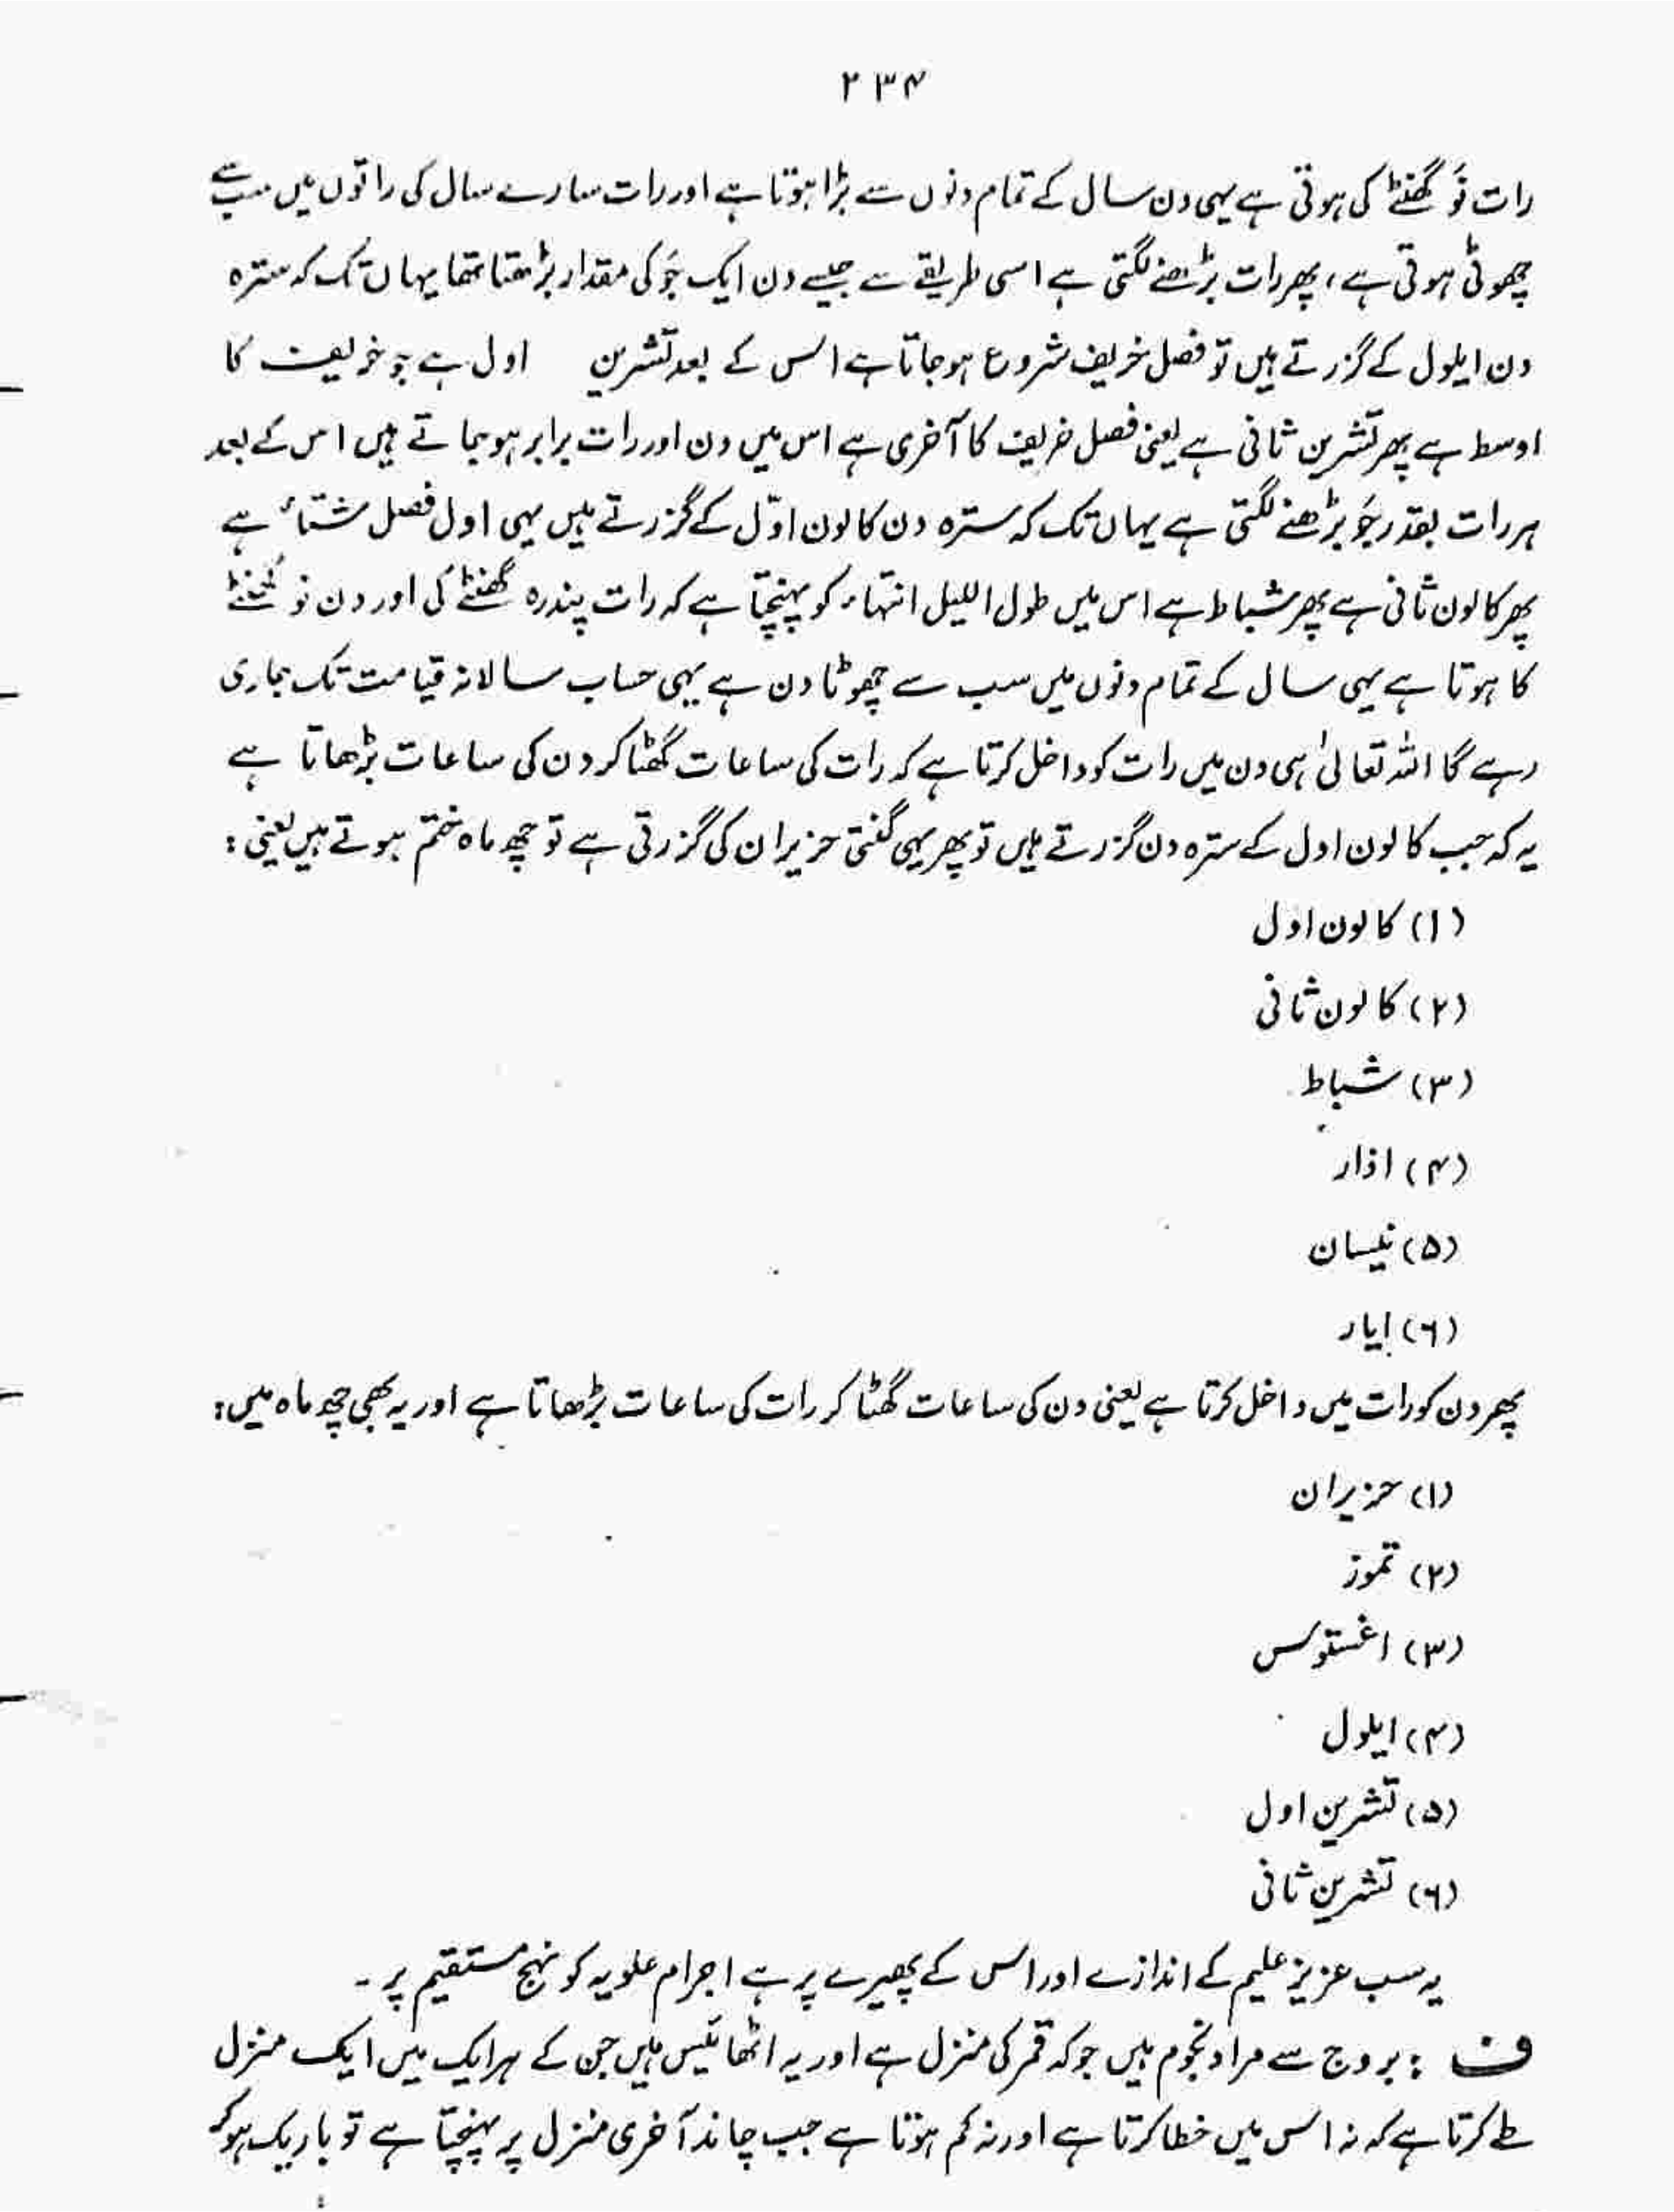 ۲۳۴
رات نَو گھنٹے کی ہوتی ہے یہی دن سال کے تمام دنوں سے بڑا ہوتا ہے اور رات سارے سال کی راتوں میں سب سے
چھوٹی ہوتی ہے، پھر رات بڑھنے لگتی ہے اسی طریقے سے جیسے دن ایک جَو کی مقدار بڑھتا تھا یہاں تک کہ سترہ
دن ایلول کے گزرتے ہیں تو فصل خریف شروع ہو جاتا ہے اس کے بعد تشرین اول ہے جو خریف کا
اوسط ہے پھر تشرین ثانی ہے یعنی فصل خریف کا آخری ہے اس میں دن اور رات برابر ہو جاتے ہیں اس کے بعد
ہر رات بقدر جَو بڑھنے لگتی ہے یہاں تک کہ سترہ دن کالون اوّل کے گزرتے ہیں یہی اول فصل شتاء ہے
پھر کالون ثانی ہے پھر شباط ہے اس میں طول اللیل انتہاء کو پہنچتا ہے کہ رات پندرہ گھنٹے کی اور دن نو گھنٹے
کا ہوتا ہے یہی سال کے تمام دنوں میں سب سے چھوٹا دن ہے یہی حساب سالانہ قیامت تک جاری
رہے گا اللہ تعالیٰ ہی دن میں رات کو داخل کرتا ہے کہ رات کی ساعات گھٹا کر دن کی ساعات بڑھاتا ہے
یہ کہ جب کالون اول کے سترہ دن گزرتے ہیں تو پھر یہی گنتی حزیران کی گزرتی ہے تو چھ ماہ ختم ہوتے ہیں یعنی :
(۱) کالون اول
(۲) کالون ثانی
(۳) شباط
(۴) اذار
(۵) نیسان
(۶) ایار
پھر دن کو رات میں داخل کرتا ہے یعنی دن کی ساعات گھٹا کر رات کی ساعات بڑھاتا ہے اور یہ بھی چھ ماہ میں :
(۱) حزیران
(۲) تموز
(۳) اغستوس
(۴) ایلول
(۵) تشرین اول
(۶) تشرین ثانی
یہ سب عزیز علیم کے اندازے اور اس کے پھیرے پر ہے اجرام علویہ کو نہج مستقیم پر ۔
ف : بروج سے مراد نجوم ہیں جو کہ قمر کی منزل ہے اور یہ اٹھائیس ہیں جن کے ہر ایک میں ایک منزل
طے کرتا ہے کہ نہ اس میں خطا کرتا ہے اور نہ کم ہوتا ہے جب چاند آخری منزل پر پہنچتا ہے تو باریک ہو کر